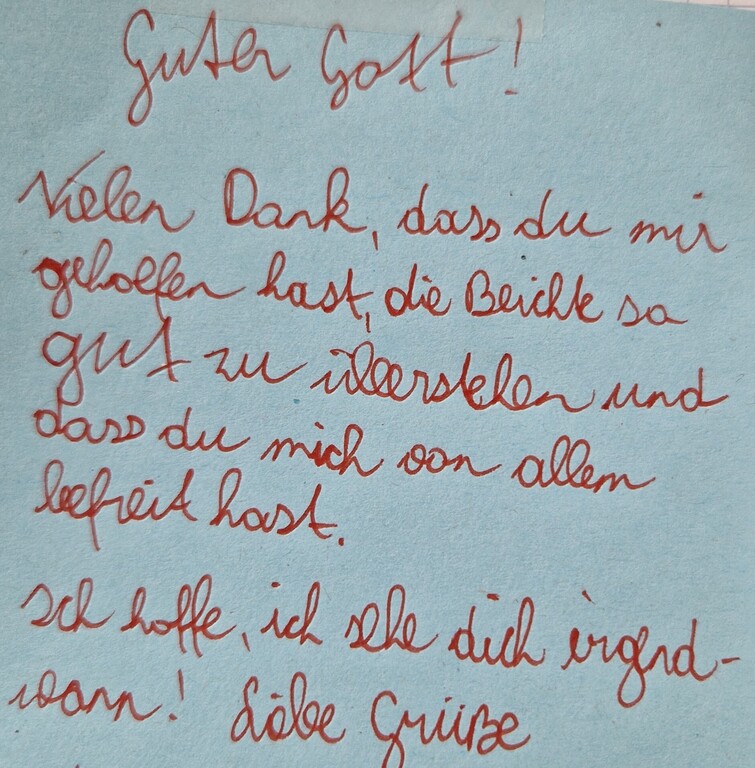 Guter Gott!
Vielen Dank, dass du mir
geholfen hast, die Beichte so
gut zu überstehen und
dass du mich von allem
befreit hast.
Ich hoffe, ich sehe dich irgend-
wann! Liebe Grüße